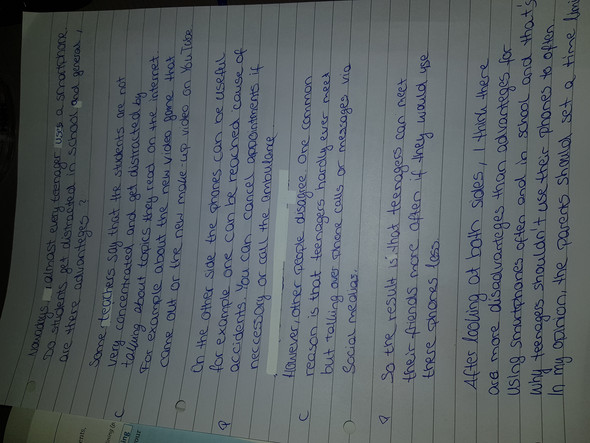 Nowadays almost every teenager uses a smartphone.
Do students get distracted in school and general,
are there advanteges?
Some teachers say that the students are not
very concentrated and get distracted by
talking about topics they read on the internet.
For example about the new video game that
came out or the new make-up video on YouTube.
C
On the other side the phones can be useful
for example one can be reached cause of
accidents. You can cancel appointments if
neccecary or call the ambulance.
P
However, other people disagree. One common
reason is that teenagers hardly ever meet
but talking over phone calls or messages via
Social medias.
C
So the result is that teenagers can meet
their friends more often if they would use
there phones less.
P
After looking at both sides, I think there
are more disadvanteges than advanteges for
using smartphones often and in school and that's
why teenages shouldn't use their phones to often.
In my opinion the parents should set a time limi